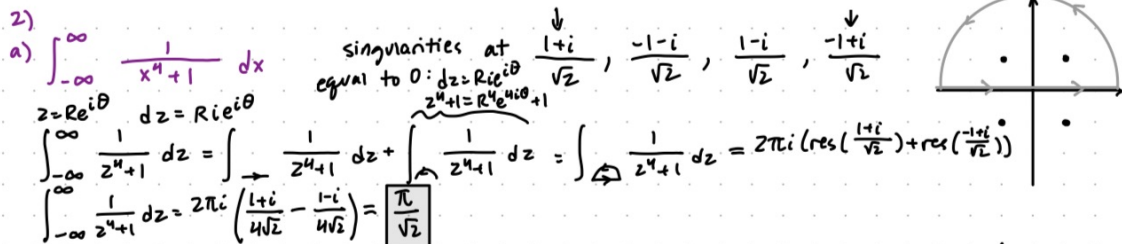 2)
a) ∫_{-∞}^{∞} 1/(x⁴+1) dx   singularities at (1+i)/√2 , (-1-i)/√2 , (1-i)/√2 , (-1+i)/√2
equal to 0: dz=Rie^{iθ}
z⁴+1=R⁴e^{4iθ}+1
z=Re^{iθ}   dz=Rie^{iθ}
∫_{-∞}^{∞} 1/(z⁴+1) dz = ∫_→ 1/(z⁴+1) dz + ∫_↶ 1/(z⁴+1) dz = ∫ 1/(z⁴+1) dz = 2πi(res((1+i)/√2)+res((-1+i)/√2))
∫_{-∞}^{∞} 1/(z⁴+1) dz = 2πi ((1+i)/(4√2) - (1-i)/(4√2)) = π/√2